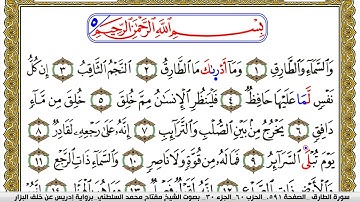 بِسْمِ اللَّهِ الرَّحْمَٰنِ الرَّحِيمِ ٥
وَالسَّمَآءِ وَالطَّارِقِ ١ وَمَآ أَدْر۪ىٰكَ مَا اَ۬لطَّارِقُ ٢ اَ۬لنَّجْمُ اُ۬لثَّاقِبُ ٣ إِن كُلُّ
نَفْسٖ لَّمَا عَلَيْهَا حَافِظٞ ٤ فَلْيَنظُرِ اِ۬لْإِنسَٰنُ مِمَّ خُلِقَ ٥ خُلِقَ مِن مَّآءٖ
دَافِقٖ ٦ يَخْرُجُ مِنۢ بَيْنِ اِ۬لصُّلْبِ وَالتَّرَآئِبِ ٧ إِنَّهُۥ عَلَىٰ رَجْعِهِۦ لَقَادِرٞ ٨
يَوْمَ تُبْلَى اَ۬لسَّرَآئِرُ ٩ فَمَا لَهُۥ مِن قُوَّةٖ وَلَا نَاصِرٖ ١٠ وَالسَّمَآءِ ذَاتِ اِ۬لرَّجْعِ ١١
سورة الطارق . الصفحة ٥٩١. الحزب ٦٠. الجزء ٣٠. بصوت الشيخ مفتاح محمد السلطني. برواية إدريس عن خلف البزار